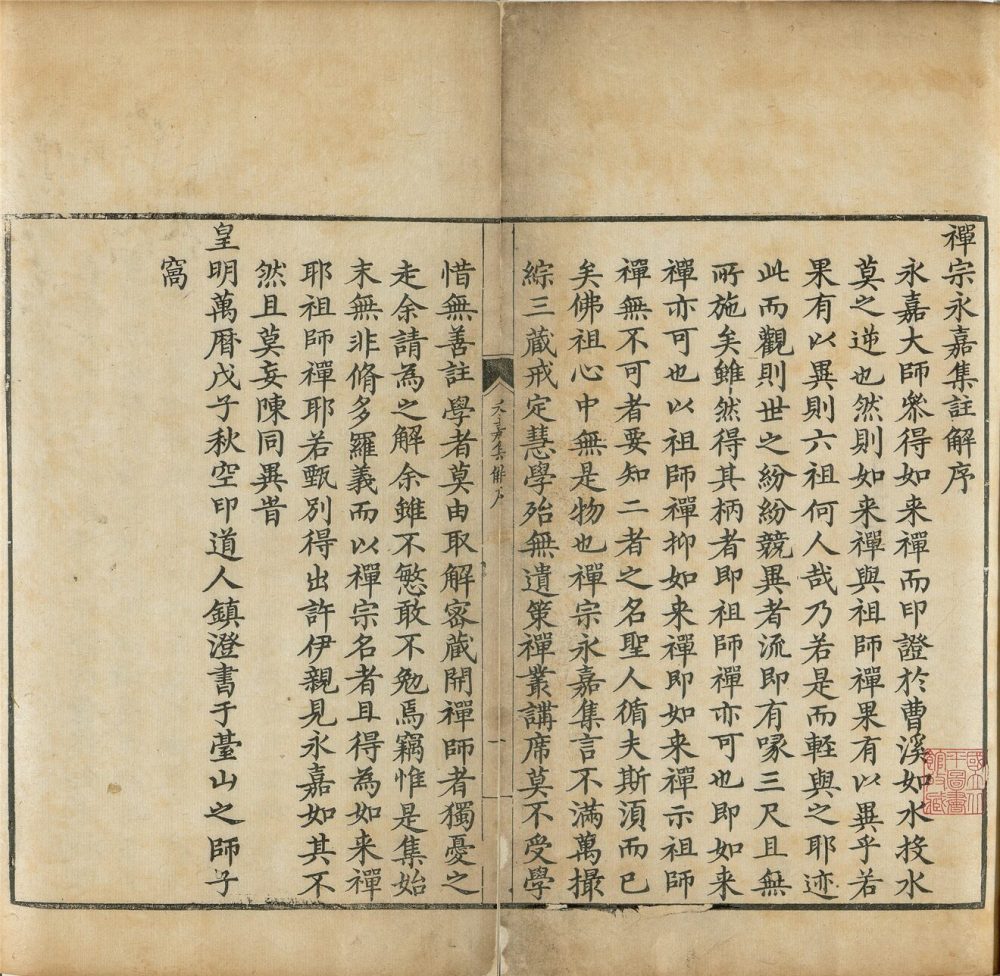 禪宗永嘉集註解序
永嘉大師叅得如来禪而印證於曹溪如水投水
莫之逆也然則如来禪與祖師禪果有以異乎若
果有以異則六祖何人哉乃若是而輕與之耶迹
此而觀則世之紛紛競異者流即有喙三尺且無
所施矣雖然得其柄者即祖師禪亦可也即如来
禪亦可也以祖師禪抑如来禪即如来禪示祖師
禪無不可者要知二者之名聖人循夫斯湏而已
矣佛祖心中無是物也禪宗永嘉集言不滿萬撮
綜三藏戒定慧學殆無遺策禪叢講席莫不受學
惜無善註學者莫由取解密藏開禪師者獨憂之
走余請為之解余雖不慜敢不勉焉竊惟是集始
末無非脩多羅義而以禪宗名者且得為如来禪
耶祖師禪耶若甄別得出許伊親見永嘉如其不
然且莫妄陳同異旹
皇明萬曆戊子秋空印道人鎮澄書于臺山之師子
窩
永嘉集解序
一
國立北
平圖書
館收藏